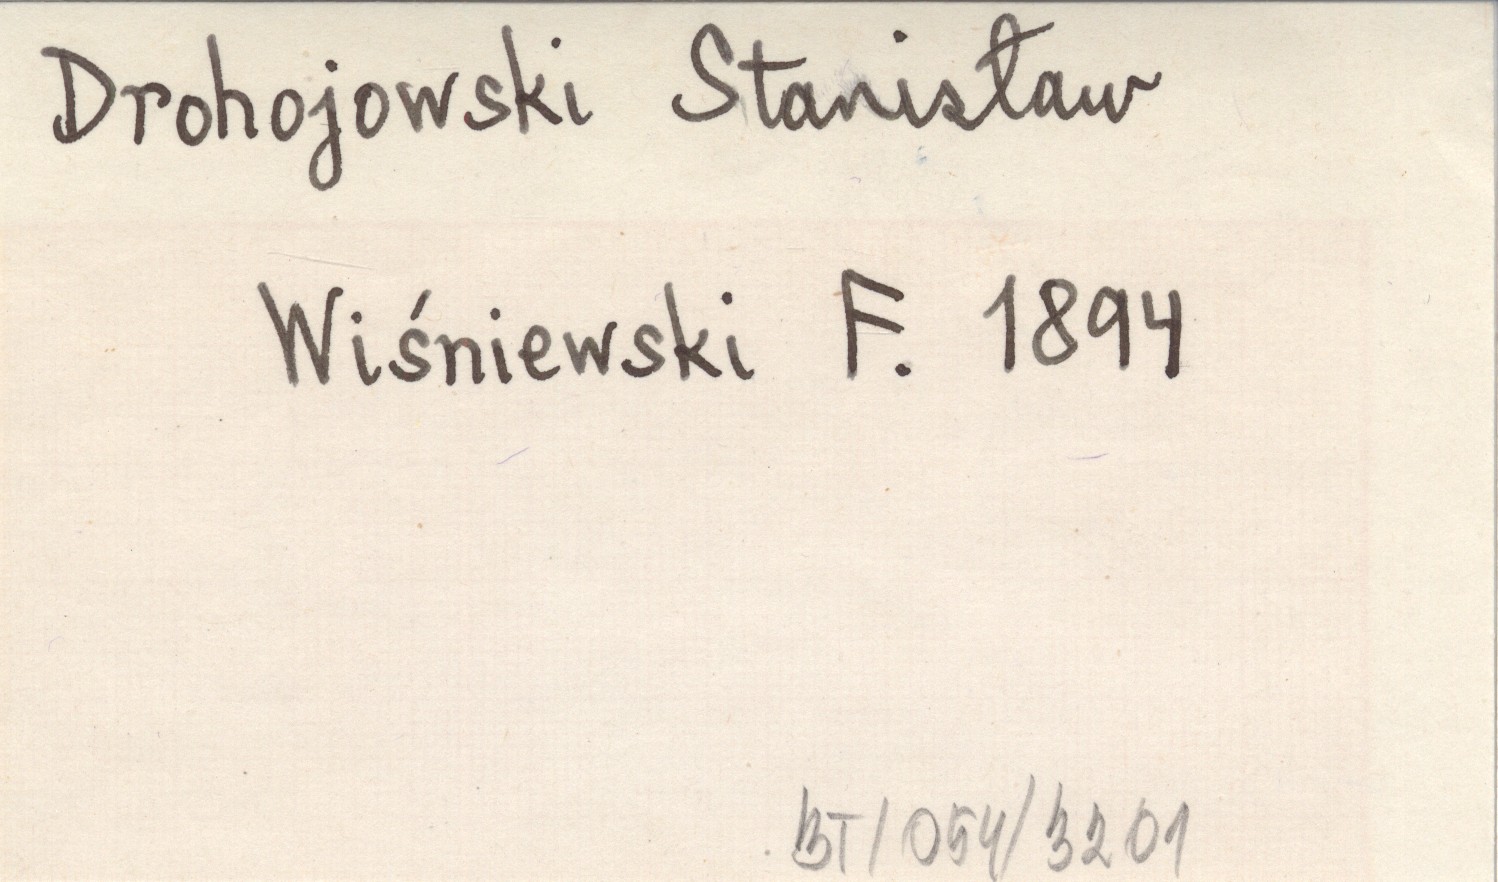 Drohojowski Stanisław
Wiśniewski F. 1894
BT/054/3201